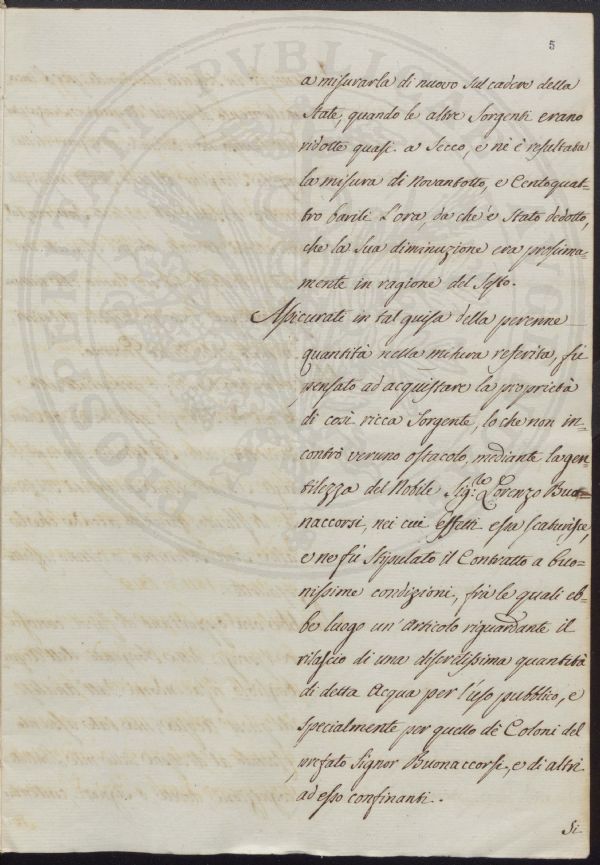 5
a misurarla di nuovo sul cadere della
State, quando le altre Sorgenti erano
ridotte quasi a Secco, e nè è resultata
la misura di Novantotto, e Centoquat=
tro barili L'ora, da che è Stato dedotto,
che la Sua diminuzione era prossima=
mente in ragione del Sesto.
Assicurati in tal guisa della perenne
quantità nella misura referita, fù
pensato ad acquistare la proprietà
di così ricca Sorgente, lo che non in=
contrò veruno ostacolo, mediante la gen=
tilezza del Nobile Sig.re Lorenzo Buo=
naccorsi, nei cui effetti essa Scaturisce,
e ne fù Stipulato il Contratto a buo=
nissime condizioni, frà le quali eb=
be luogo un'Articolo riguardante il
rilascio di una discretissima quantità
di detta Acqua per l'uso pubblico, e
Specialmente per quello de Coloni del
prefato Signor Buonaccorsi, e di altri
ad esso confinanti.
Si
PROSPERITATI PUBLICAE